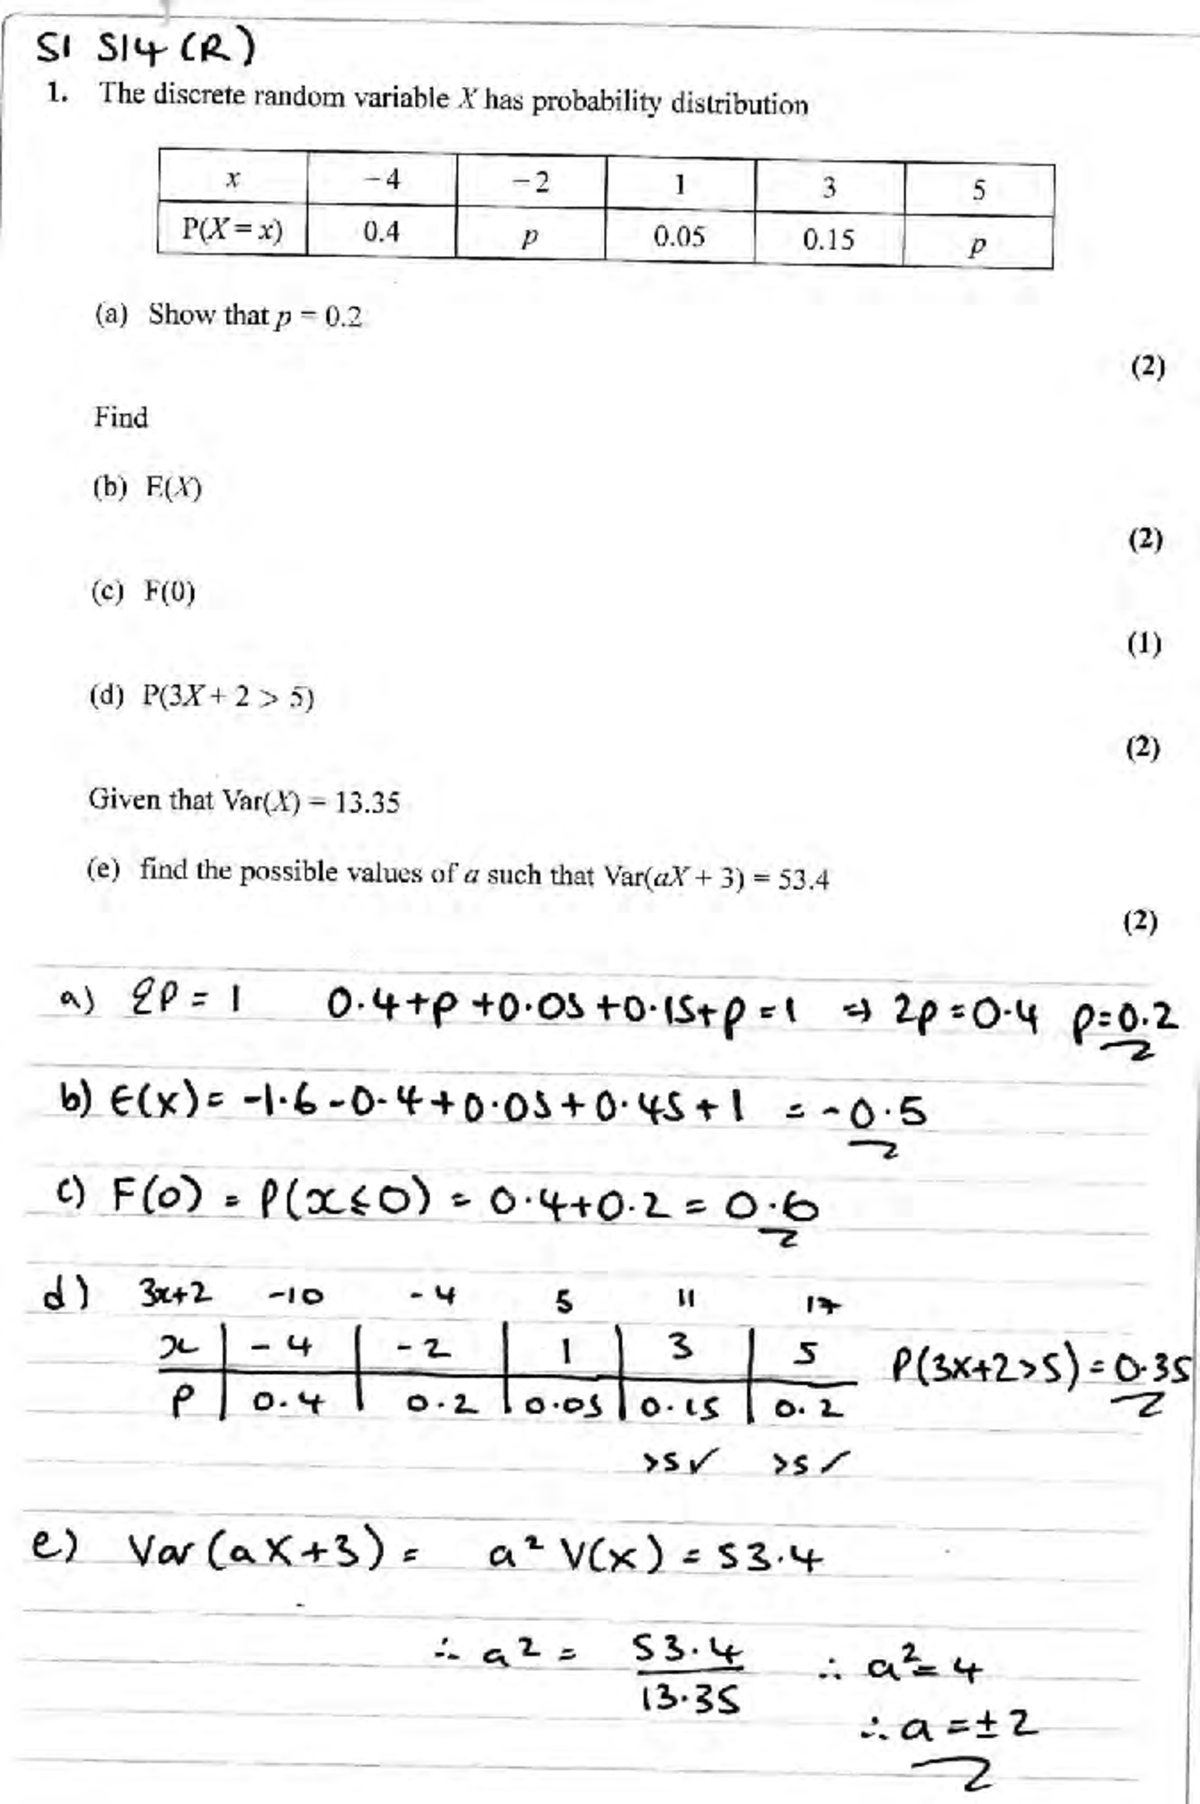 S1 S14 (R)
1. The discrete random variable X has probability distribution
x -4 -2 1 3 5
P(X = x) 0.4 p 0.05 0.15 p
(a) Show that p = 0.2
(2)
Find
(b) E(X)
(2)
(c) F(0)
(1)
(d) P(3X + 2 > 5)
(2)
Given that Var(X) = 13.35
(e) find the possible values of a such that Var(aX + 3) = 53.4
(2)
a) ΣP = 1 0.4+p+0.05+0.15+p=1 ⇒ 2p=0.4 p=0.2
b) E(X)= -1.6-0.4+0.05+0.45+1 = -0.5
c) F(0) = P(x≤0) = 0.4+0.2 = 0.6
d) 3x+2 -10 -4 5 11 17
x -4 -2 1 3 5 P(3X+2>5)=0.35
P 0.4 0.2 0.05 0.15 0.2
>5✓ >5✓
e) Var(aX+3) = a² V(X) = 53.4
∴ a² = 53.4/13.35 ∴ a²=4
∴ a=±2